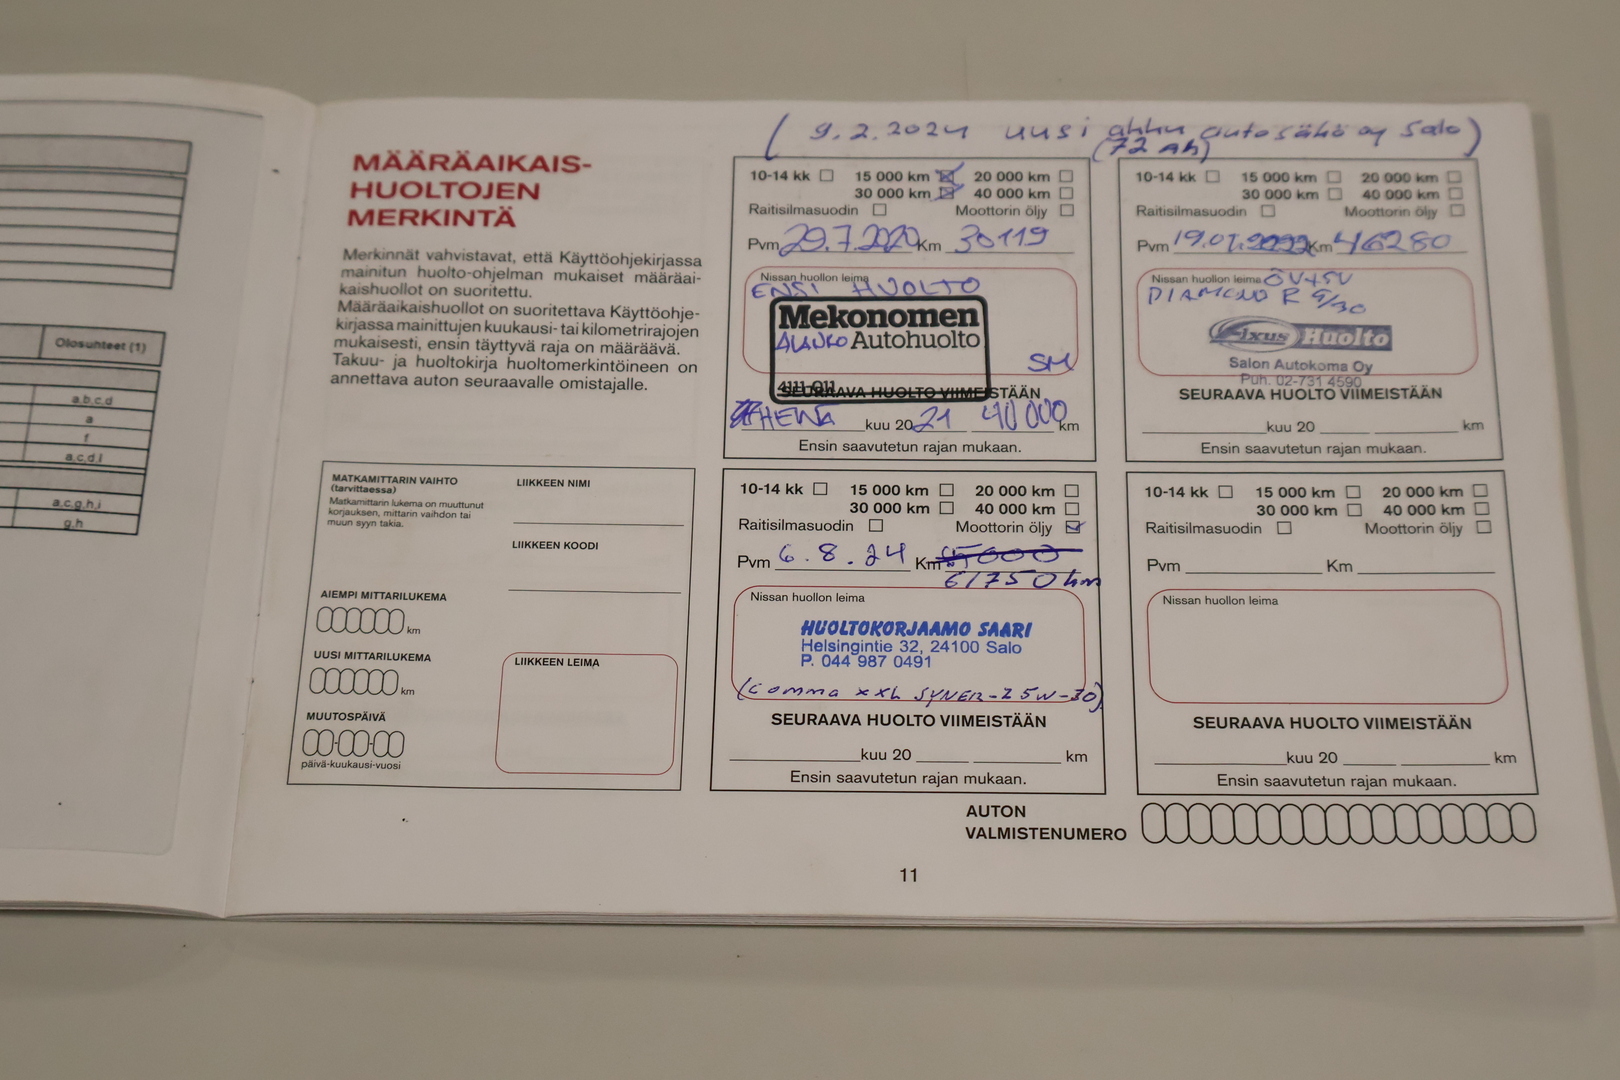 Olosuhteet (1)
a,b,c,d
a
f
a,c,d,l
a,c,g,h,i
g,h
MÄÄRÄAIKAIS-
HUOLTOJEN
MERKINTÄ
Merkinnät vahvistavat, että Käyttöohjekirjassa
mainitun huolto-ohjelman mukaiset määräai-
kaishuollot on suoritettu.
Määräaikaishuollot on suoritettava Käyttöohje-
kirjassa mainittujen kuukausi- tai kilometrirajojen
mukaisesti, ensin täyttyvä raja on määräävä.
Takuu- ja huoltokirja huoltomerkintöineen on
annettava auton seuraavalle omistajalle.
MATKAMITTARIN VAIHTO
(tarvittaessa)
Matkamittarin lukema on muuttunut
korjauksen, mittarin vaihdon tai
muun syyn takia.
AIEMPI MITTARILUKEMA
km
UUSI MITTARILUKEMA
km
MUUTOSPÄIVÄ
päivä-kuukausi-vuosi
LIIKKEEN NIMI
LIIKKEEN KOODI
LIIKKEEN LEIMA
(9.2.2024 uusi akku autosähkö oy Salo)
(72 Ah)
10-14 kk 15 000 km 20 000 km
30 000 km 40 000 km
Raitisilmasuodin Moottorin öljy
Pvm 29.7.2020 Km 30119
Nissan huollon leima
ENSI HUOLTO
Mekonomen
ALANKO Autohuolto
SM
4111 011
SEURAAVA HUOLTO VIIMEISTÄÄN
HEINÄ kuu 2021 40000 km
Ensin saavutetun rajan mukaan.
10-14 kk 15 000 km 20 000 km
30 000 km 40 000 km
Raitisilmasuodin Moottorin öljy
Pvm 19.07.2022 Km 46280
Nissan huollon leima ÖV+SV
DIAMOND R 5/30
Axus Huolto
Salon Autokoma Oy
Puh. 02-731 4590
SEURAAVA HUOLTO VIIMEISTÄÄN
kuu 20 km
Ensin saavutetun rajan mukaan.
10-14 kk 15 000 km 20 000 km
30 000 km 40 000 km
Raitisilmasuodin Moottorin öljy
Pvm 6.8.24 Km
61750 km
Nissan huollon leima
HUOLTOKORJAAMO SAARI
Helsingintie 32, 24100 Salo
P. 044 987 0491
(Comma xxL SYNER-Z 5W-30)
SEURAAVA HUOLTO VIIMEISTÄÄN
kuu 20 km
Ensin saavutetun rajan mukaan.
10-14 kk 15 000 km 20 000 km
30 000 km 40 000 km
Raitisilmasuodin Moottorin öljy
Pvm Km
Nissan huollon leima
SEURAAVA HUOLTO VIIMEISTÄÄN
kuu 20 km
Ensin saavutetun rajan mukaan.
AUTON
VALMISTENUMERO
11